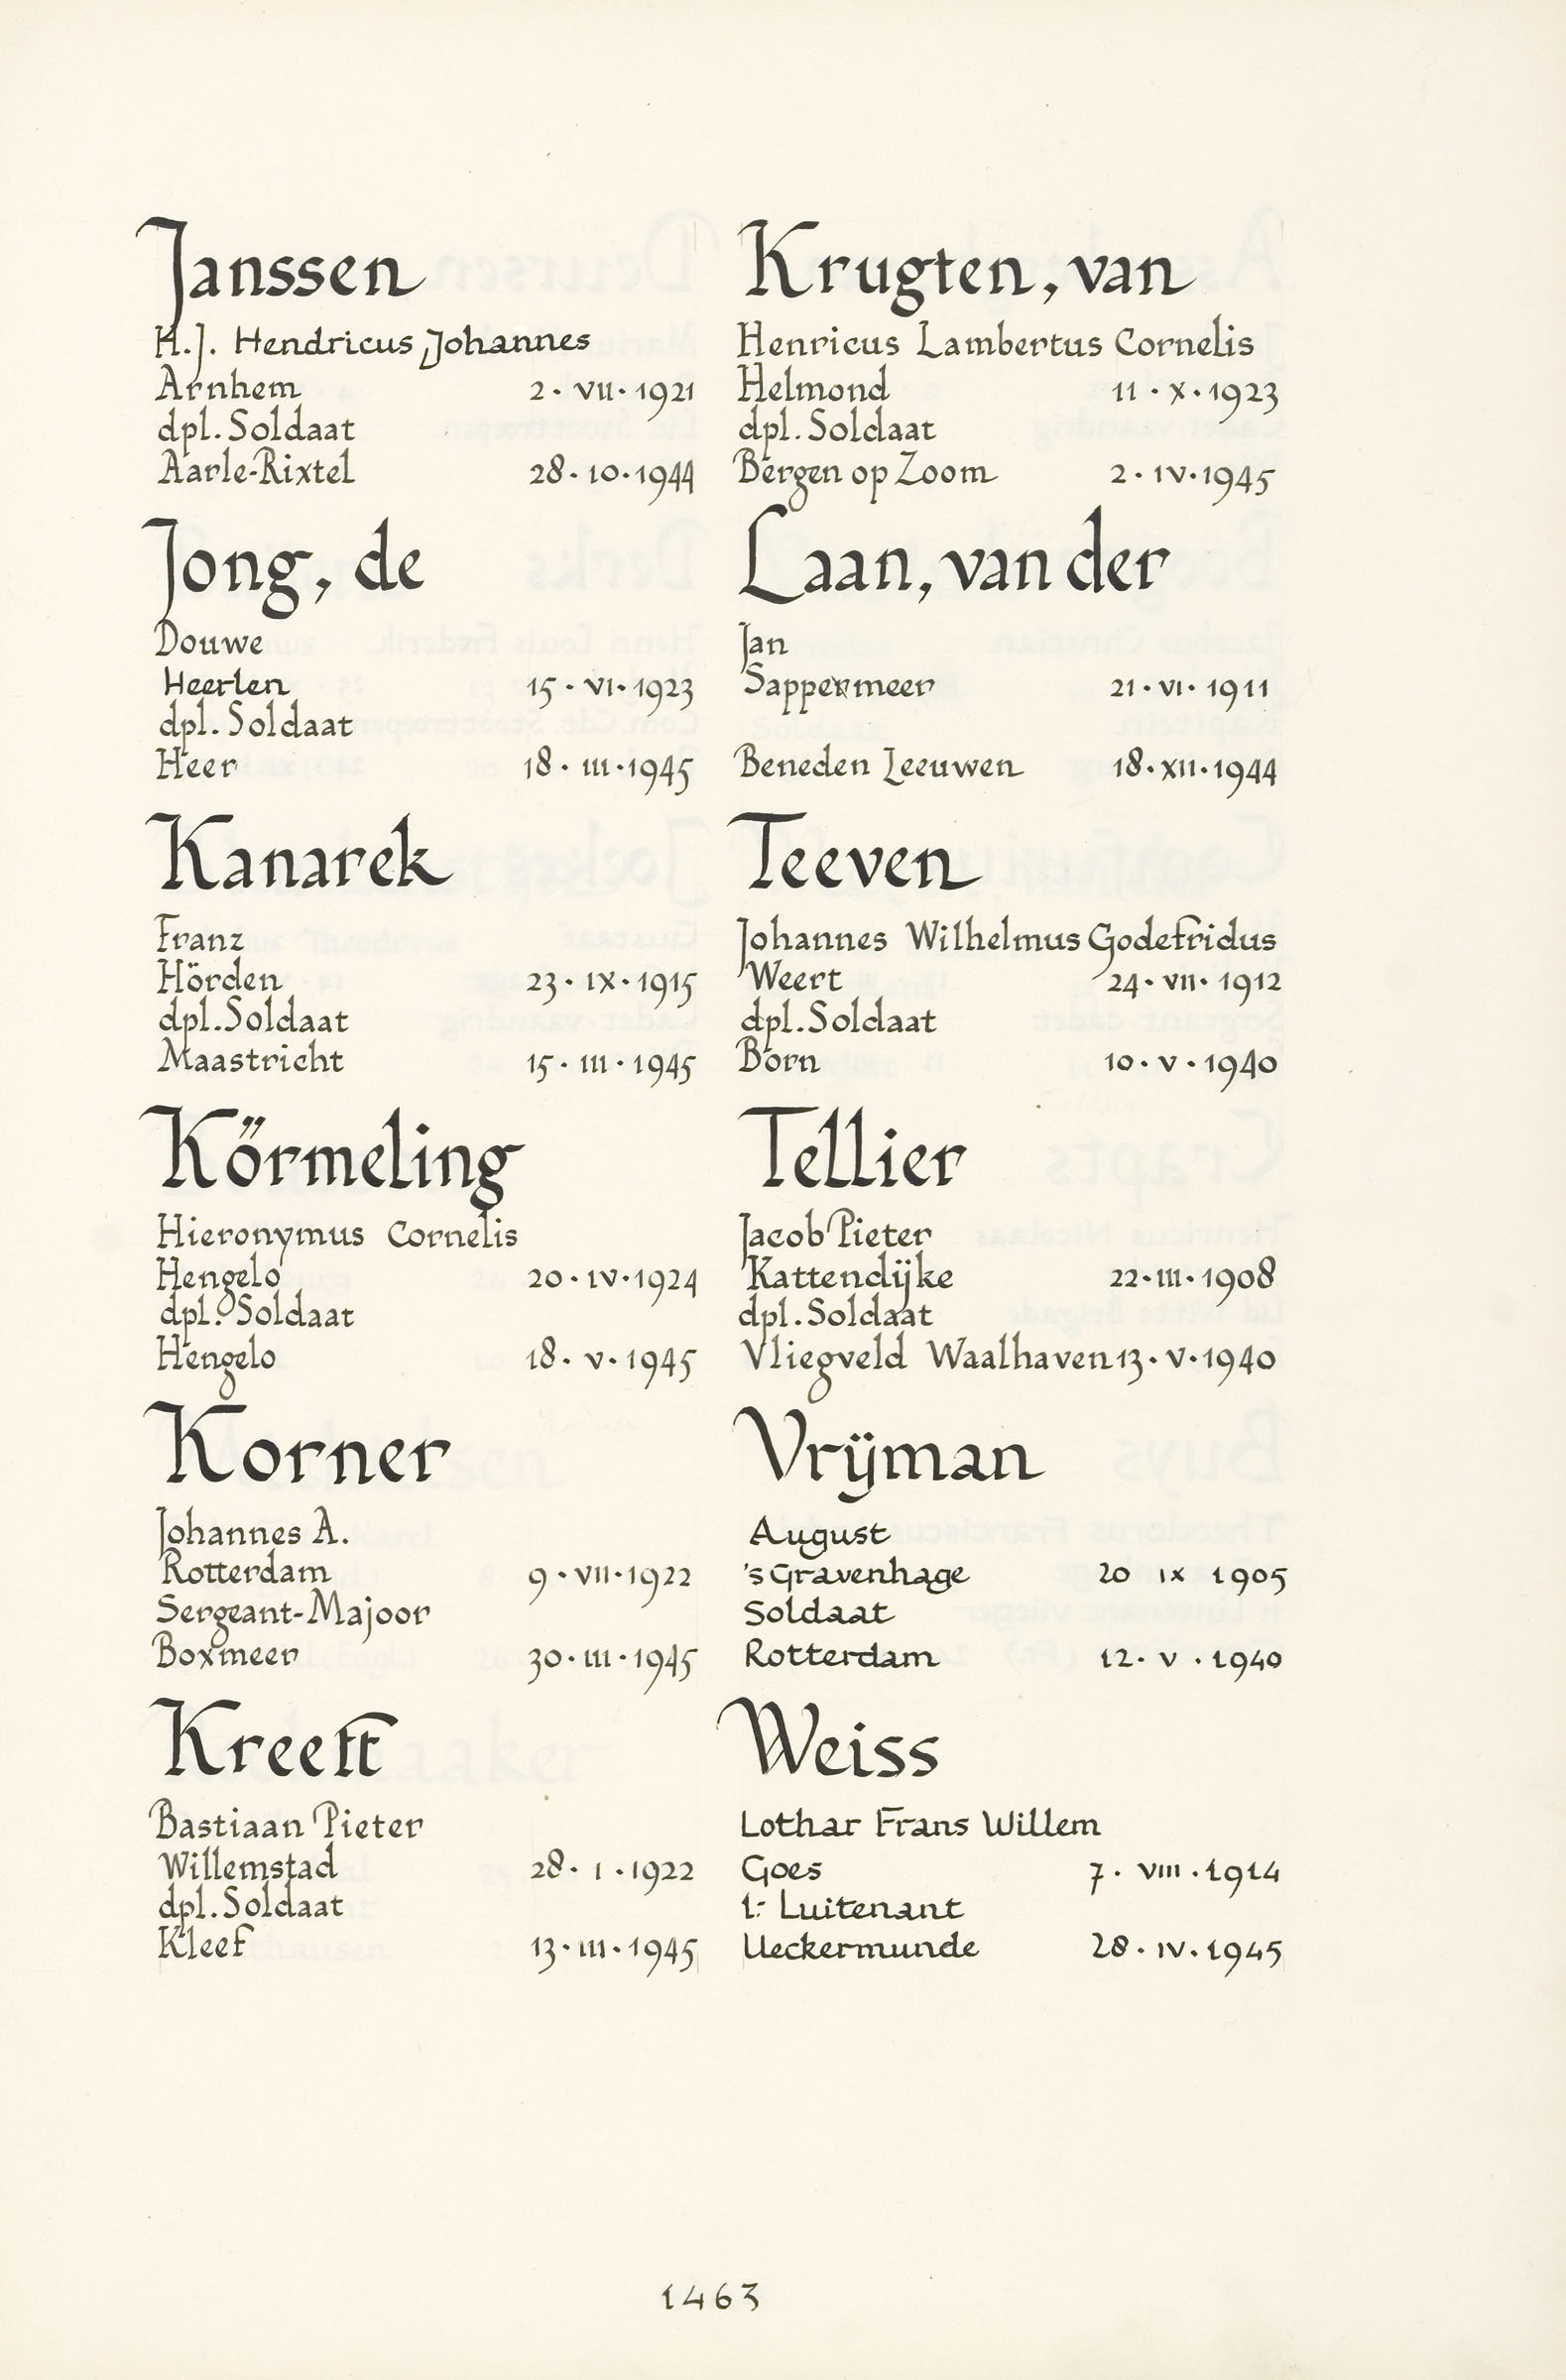 Janssen
H.J. Hendricus Johannes
Arnhem 2 · VII · 1921
dpl. Soldaat
Aarle-Rixtel 28 · 10 · 1944
Jong, de
Douwe
Heerlen 15 · VI · 1923
dpl. Soldaat
Heer 18 · III · 1945
Kanarek
Franz
Hörden 23 · IX · 1915
dpl. Soldaat
Maastricht 15 · III · 1945
Körmeling
Hieronymus Cornelis
Hengelo 20 · IV · 1924
dpl. Soldaat
Hengelo 18 · V · 1945
Korner
Johannes A.
Rotterdam 9 · VII · 1922
Sergeant-Majoor
Boxmeer 30 · III · 1945
Kreeft
Bastiaan Pieter
Willemstad 28 · I · 1922
dpl. Soldaat
Kleef 13 · III · 1945
Krugten, van
Henricus Lambertus Cornelis
Helmond 11 · X · 1923
dpl. Soldaat
Bergen op Zoom 2 · IV · 1945
Laan, van der
Jan
Sappermeer 21 · VI · 1911
Beneden Leeuwen 18 · XII · 1944
Teeven
Johannes Wilhelmus Godefridus
Weert 24 · VII · 1912
dpl. Soldaat
Born 10 · V · 1940
Tellier
Jacob Pieter
Kattendijke 22 · III · 1908
dpl. Soldaat
Vliegveld Waalhaven 13 · V · 1940
Vrijman
August
's Gravenhage 20 IX 1905
Soldaat
Rotterdam 12 · V · 1940
Weiss
Lothar Frans Willem
Goes 7 · VIII · 1914
1e Luitenant
Ueckermunde 28 · IV · 1945
1463